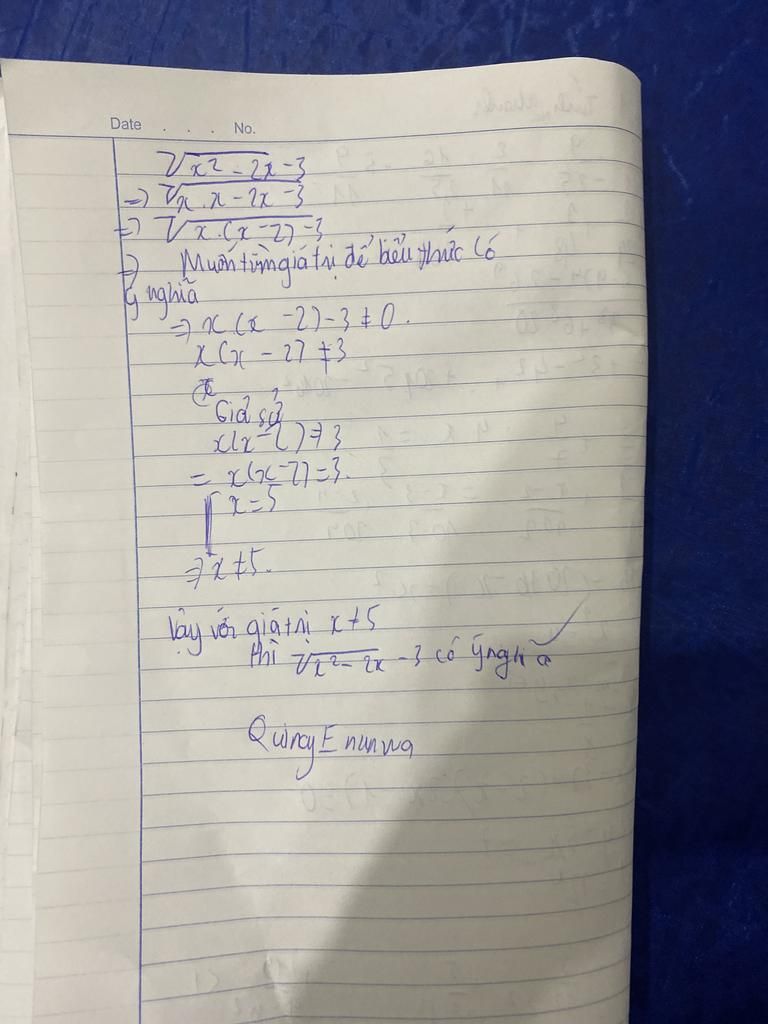 Date . . . No.
√x² - 2x - 3
=> √x.x - 2x - 3
=> √x.(x - 2) - 3
=> Muốn tìm giá trị để biểu thức có
ý nghĩa
=> x(x - 2) - 3 ≠ 0.
x(x - 2) ≠ 3
Giả sử
x(x - 2) ≠ 3
= x(x - 2) = 3.
x = 5
=> x ≠ 5.
Vậy với giá trị x ≠ 5
thì √x² - 2x - 3 có ý nghĩa